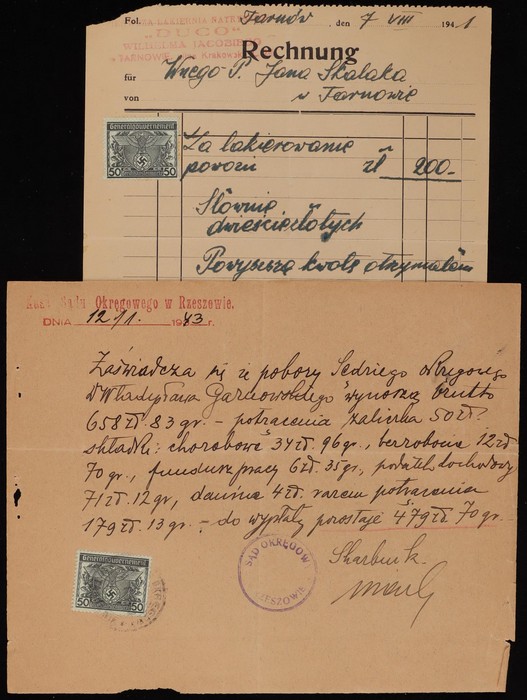 Fol. Tarnów den 7 VIII 1941
LAKIERNIA NATRY
"DUCO"
WILHELMA JACOBIEGO
w TARNOWIE,
Rechnung
für Wnego P. Jana Skalaka
von w Tarnowie
Generalgouvernement
50 50
Za lakierowanie
powozu zł 200.—
Słownie
dwieściezłotych
Powyższą kwotę otrzymałem
Sądu Okręgowego w Rzeszowie.
DNIA 12/1. 1943 r.
Zaświadcza się że pobory Sędziego Okręgowego
Władysława Garnowskiego wynoszą brutto
658 zł. 83 gr. – potrącenia zaliczka 50 zł.
składki: chorobowe 34 zł. 96 gr., bezrobocie 12 zł.
70 gr., fundusz pracy 6 zł. 35 gr., podatek dochodowy
71 zł. 12 gr, danina 4 zł. razem potrącenia
179 zł. 13 gr. – do wypłaty pozostaje 479 zł. 70 gr.
Skarbnik
SĄD OKRĘGOW
RZESZOWIE
Generalgouvernement
50 50